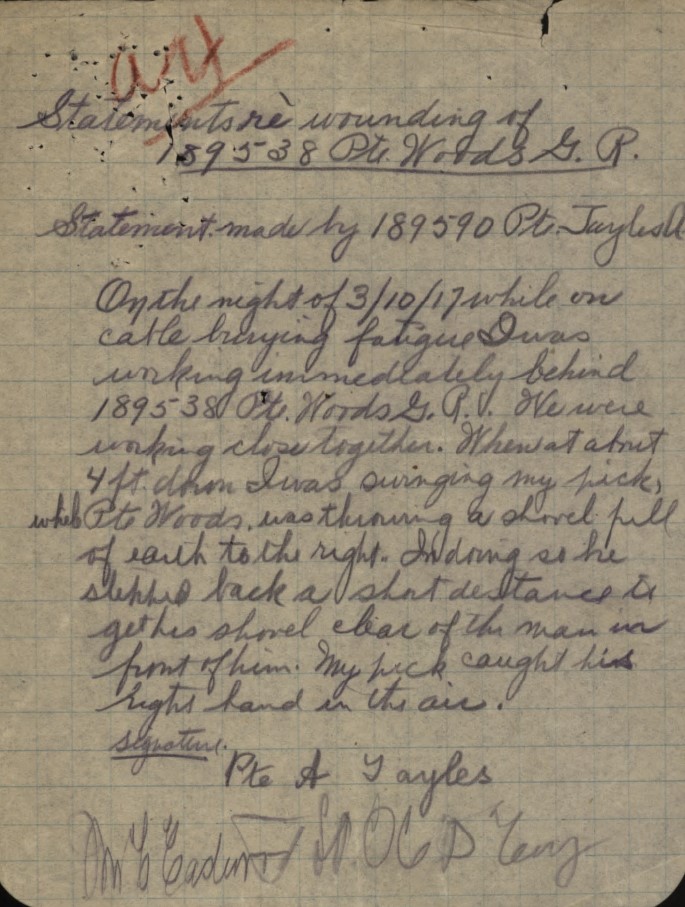 Statements rè wounding of
189538 Pte. Woods G. R.
Statement made by 189590 Pte. Tayles A
On the night of 3/10/17 while on
cable burying fatigue I was
working immediately behind
189538 Pte. Woods G. R. We were
working close together. When at about
4 ft. down I was swinging my pick,
while Pte Woods, was throwing a shovel full
of earth to the right. In doing so he
stepped back a short destance to
get his shovel clear of the man in
front of him. My pick caught his
right hand in the air.
signature.
Pte A Tayles
Lt. OC D